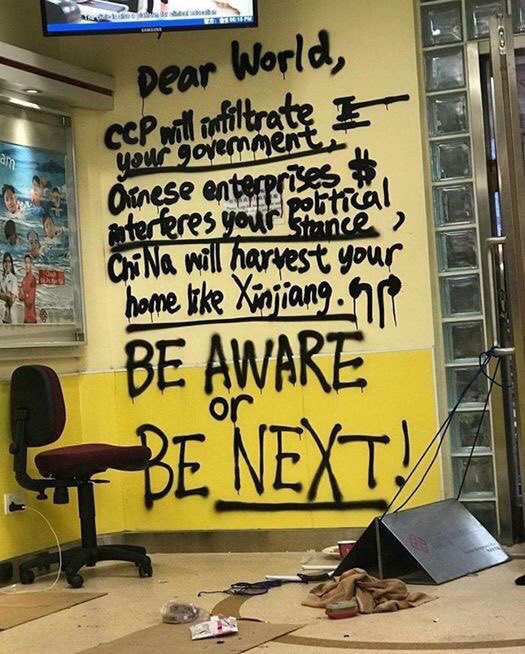 SAMSUNG
06:18 PM
Dear World,
CCP will infiltrate
your government,
Chinese enterprises $
interferes your political
stance,
ChiNa will harvest your
home like Xinjiang.
BE AWARE
or
BE NEXT!